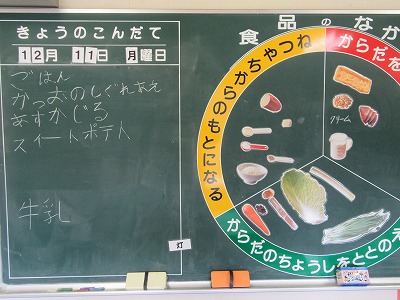 きょうのこんだて
12月 11日 月曜日
ごはん
かつおのしぐれあえ
あすかじる
スイートポテト
牛乳
灯
食品のなか
ちからやねつ
のもとになる
からだを
クリーム
からだのちょうしをととのえ